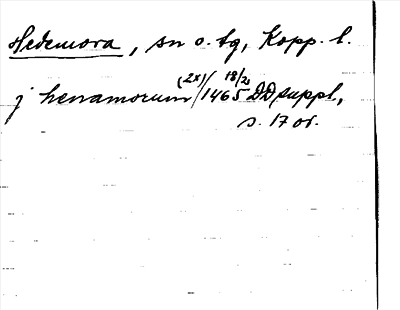 Hedemora, sn o. tg, Kopp. l.
j henamorum (2x)/ 18/2 1465 DD suppl,
s. 17 or.